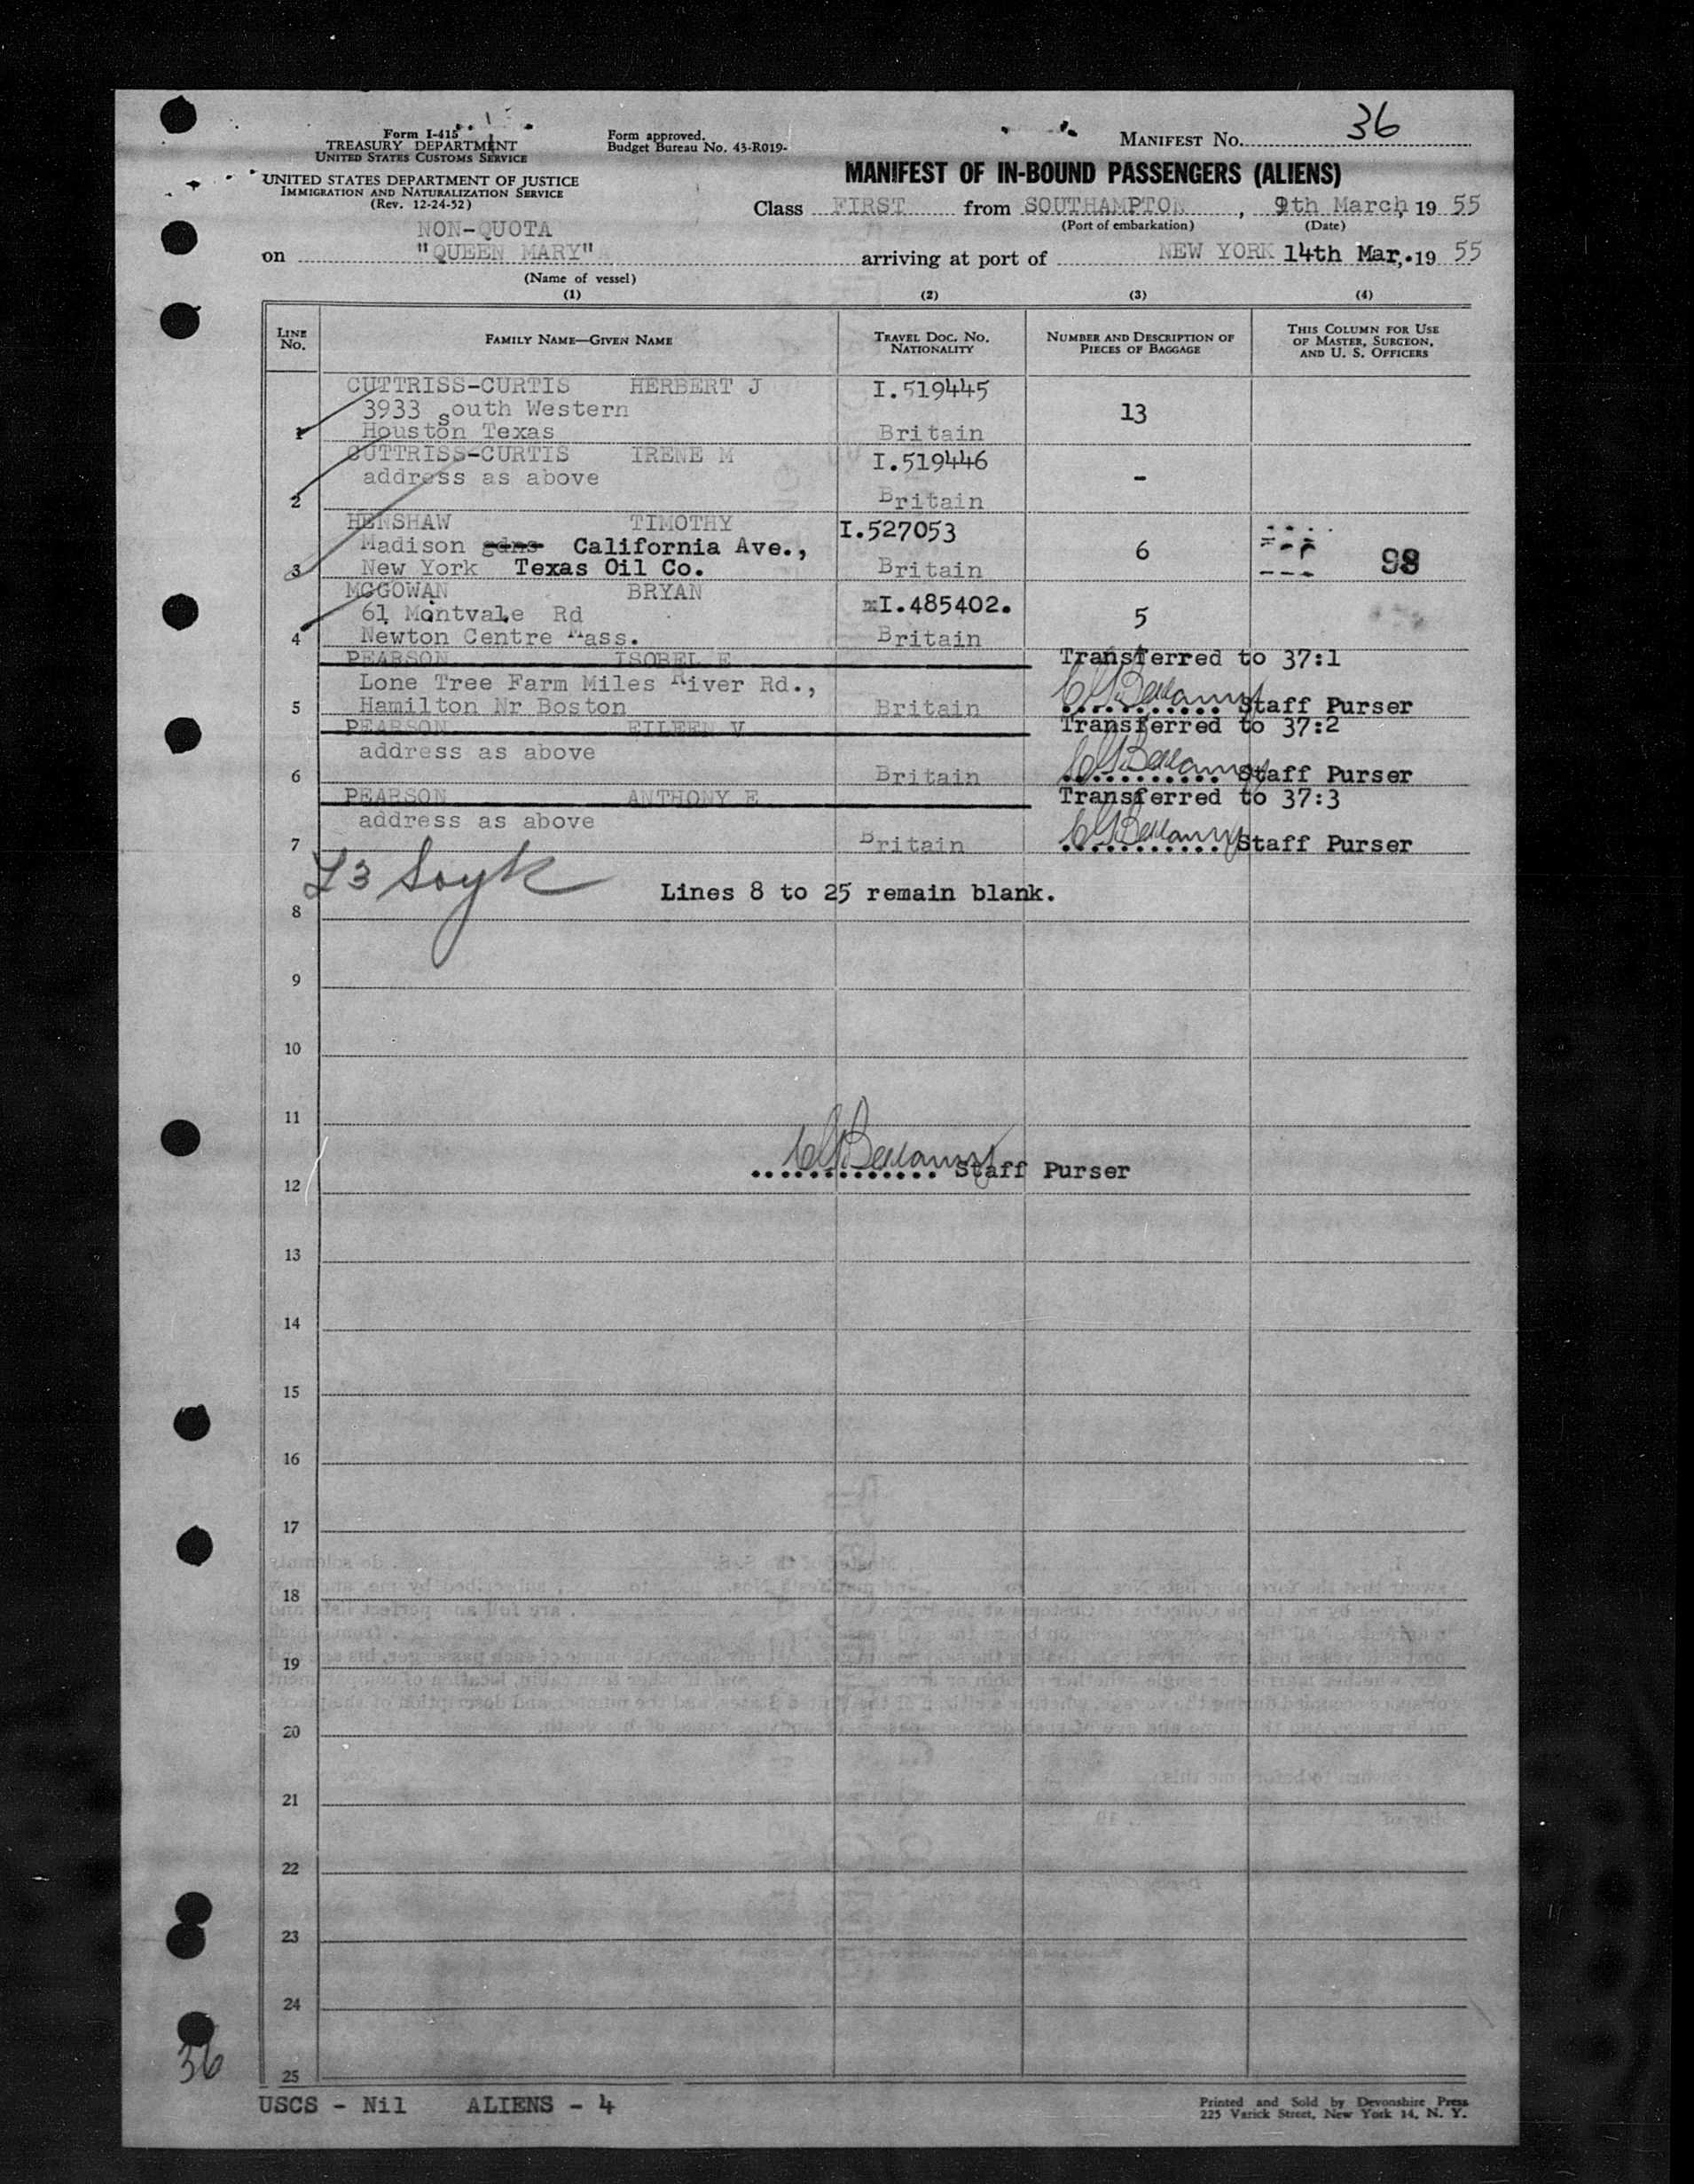 Form I-415
TREASURY DEPARTMENT
UNITED STATES CUSTOMS SERVICE
UNITED STATES DEPARTMENT OF JUSTICE
IMMIGRATION AND NATURALIZATION SERVICE
(Rev. 12-24-52)
Form approved.
Budget Bureau No. 43-R019-
MANIFEST No. 36
MANIFEST OF IN-BOUND PASSENGERS (ALIENS)
Class FIRST from SOUTHAMPTON, 9th March, 19 55
(Port of embarkation) (Date)
NON-QUOTA
on "QUEEN MARY" arriving at port of NEW YORK 14th Mar,.19 55
(Name of vessel)
(1) (2) (3) (4)
LINE No. FAMILY NAME—GIVEN NAME TRAVEL DOC. NO. NATIONALITY NUMBER AND DESCRIPTION OF PIECES OF BAGGAGE THIS COLUMN FOR USE OF MASTER, SURGEON, AND U. S. OFFICERS
CUTTRISS-CURTIS HERBERT J I.519445
3933 South Western 13
1 Houston Texas Britain
CUTTRISS-CURTIS IRENE M I.519446
address as above -
2 Britain
HENSHAW TIMOTHY I.527053
Madison gdns California Ave., 6 98
3 New York Texas Oil Co. Britain
MCGOWAN BRYAN xI.485402.
61 Montvale Rd 5
4 Newton Centre Mass. Britain
PEARSON ISOBEL E Transferred to 37:1
Lone Tree Farm Miles River Rd.,
5 Hamilton Nr Boston Britain Staff Purser
PEARSON EILEEN V Transferred to 37:2
address as above
6 Britain Staff Purser
PEARSON ANTHONY E Transferred to 37:3
address as above
7 Britain Staff Purser
Lines 8 to 25 remain blank.
8
9
10
11
Staff Purser
12
13
14
15
16
17
18
19
20
21
22
23
24
36
25
USCS - Nil ALIENS - 4
Printed and Sold by Devonshire Press
225 Varick Street, New York 14, N. Y.